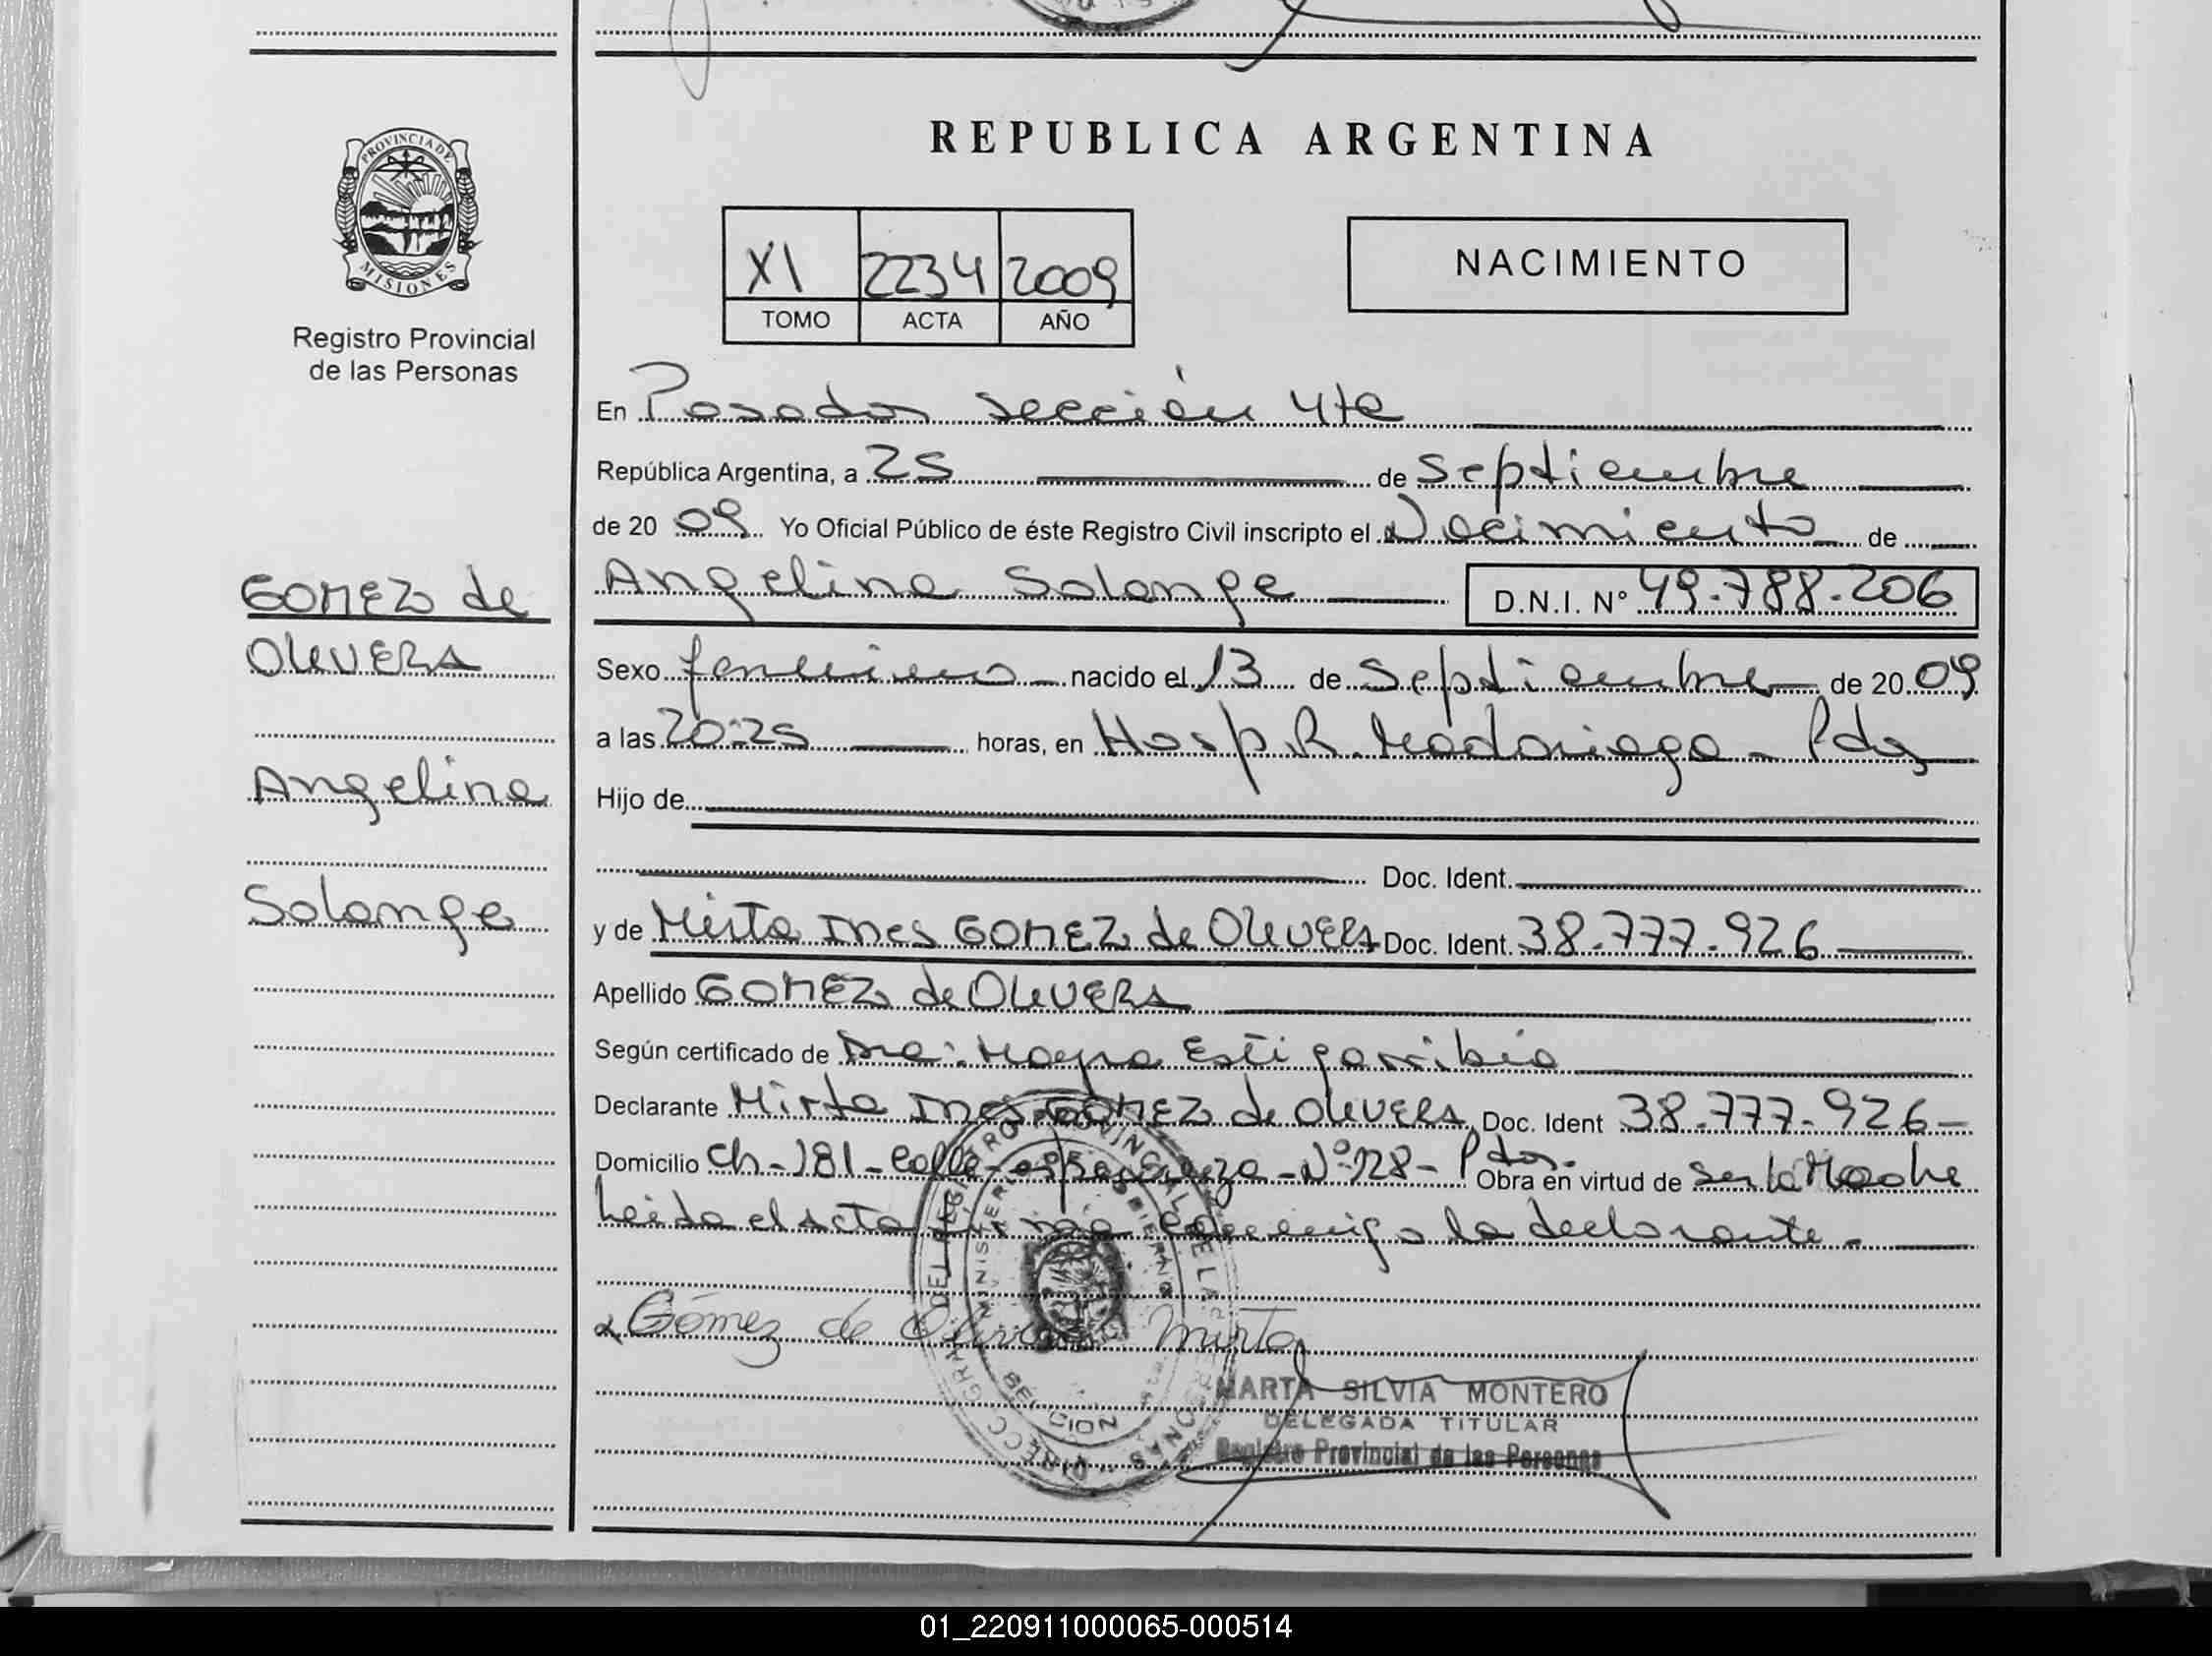 PROVINCIA DE
MISIONES
Registro Provincial
de las Personas
GOMEZ de
OLIVERA
Angelina
Solange
REPUBLICA ARGENTINA
XI 2234 2009
TOMO ACTA AÑO
NACIMIENTO
En Posadas sección 4ta
República Argentina, a 25 de Septiembre
de 20 09 Yo Oficial Público de éste Registro Civil inscripto el Nacimiento de
Angelina Solange D.N.I. N° 49.788.206
Sexo femenino nacido el 13 de Septiembre de 20 09
a las 20:25 horas, en Hosp. R. Madariaga - Pdas
Hijo de
Doc. Ident.
y de Mirta Ines GOMEZ de OLIVERA Doc. Ident. 38.777.926
Apellido GOMEZ de OLIVERA
Según certificado de Dra: Mayra Estigarribia
Declarante Mirta Ines GOMEZ de OLIVERA Doc. Ident 38.777.926
Domicilio Ch-181-Calle esperanza-N°128-Pdas. Obra en virtud de ser la Madre
Leida el acta firma conmigo la declarante.
Gómez de Olivera Mirta
MARTA SILVIA MONTERO
DELEGADA TITULAR
Registro Provincial de las Personas
01_220911000065-000514